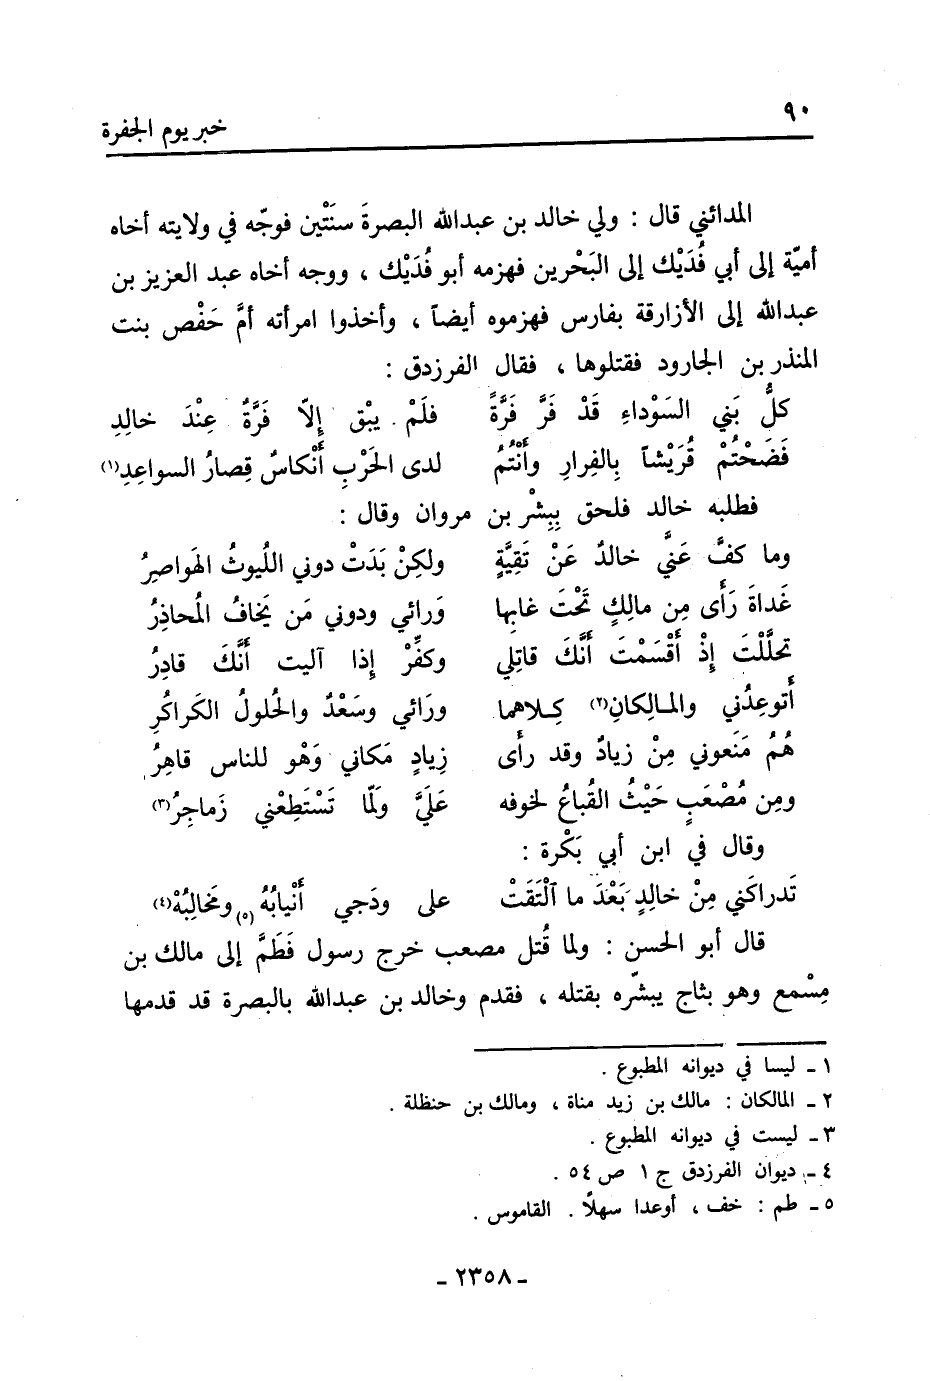 ٩٠
خبر يوم الجفرة
المدائني قال : ولي خالد بن عبدالله البصرةَ سنَتْين فوجّه في ولايته أخاه
أميّة إلى أبي فُدَيْك إلى البَحْرين فهزمه أبو فُدَيْك ، ووجه أخاه عبد العزيز بن
عبدالله إلى الأزارقة بفارس فهزموه أيضاً ، وأخذوا امرأته أمَّ حَفْص بنت
المنذر بن الجارود فقتلوها ، فقال الفرزدق :
كلُّ بَني السَوْداءِ قَدْ فَرَّ فَرَّةً فلَمْ يبْق إِلّا فَرَّةٌ عِنْدَ خالِدِ
فَضَحْتُمْ قُرَيْشاً بِالفِرارِ وأَنْتُمُ لدى الحَرْبِ أَنْكاسٌ قِصارُ السواعِدِ(١)
فطلبه خالد فلحق بِبِشْر بن مروان وقال :
وما كفَّ عَنَّي خالدٌ عَنْ تَقِيَّةٍ ولكِنْ بَدَتْ دوني اللُيوثُ الهَواصِرُ
غَداةَ رَأَى مِن مالِكٍ تَحْتَ غابِها وَرائي ودوني مَن يَخافُ المُحاذِرُ
تحلَّلْتَ إِذْ أَقْسَمْتَ أَنَّكَ قاتِلي وكفِّرْ إِذا آليت أَنَّكَ قادِرُ
أَتوعِدُني والمـالِكانِ(٢) كِـلاهما ورَائي وسَعْدٌ والحُلولُ الكَراكُرِ
هُمُ مَنَعوني مِنْ زيادٌ وقد رأَى زِيادٍ مَكاني وَهْو للناس قاهِرُ
ومِن مُصْعَبٍ حَيْثُ القُباعُ لخوفه عَلَيَّ وَلمّا تَسْتَطِعْني زَماجِرُ(٣)
وقال في ابن أبي بَكْرة :
تَدراكَني مِنْ خالِدٍ بَعْدَ ما اَلْتَقَتْ على ودَجي أَنْيابُهُ ومَخالِبُهْ(٤)
قال أبو الحسن : ولما قُتل مصعب خرج رسول فَطَمَّ(٥) إلى مالك بن
مِسْمع وهو بثاج يبشّره بقتله ، فقدم وخالد بن عبدالله بالبصرة قد قدمها
١ ـ ليسا في ديوانه المطبوع .
٢ ـ المالكان : مالك بن زيد مناة ، ومالك بن حنظلة .
٣ ـ ليست في ديوانه المطبوع .
٤ ـ ديوان الفرزدق ج ١ ص ٥٤ .
٥ ـ طم : خف ، أوعدا سهلاً . القاموس .
ـ ٢٣٥٨ ـ